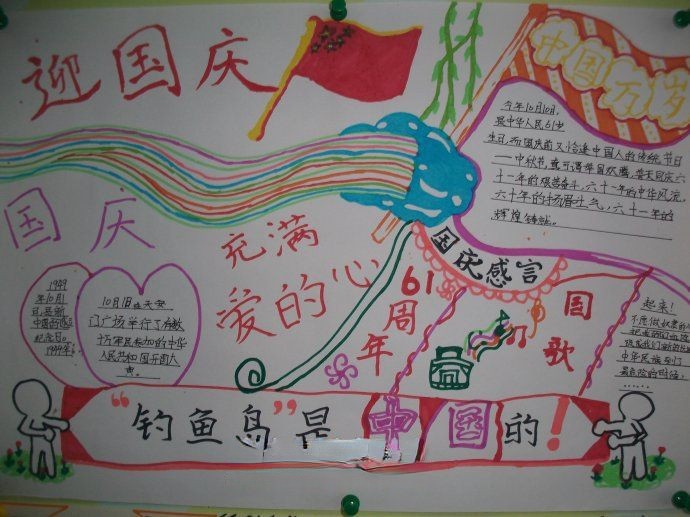 迎国庆
中国万岁
今年10月10月,
是中华人民61岁
生日,而国庆前又恰逢中国人的传统节日
——中秋节,真可谓举目欢腾,普天同庆六
十一年的艰苦奋斗,六十一年的中华风流,
六十年的扬眉吐气,六十一年的
辉煌铸就。
国庆
充满
爱的心
国庆感言
61周年
国歌
1949
年10月1
日,是新
纪念日。
1949年
10月1日在天安
门广场举行了有数
十万军民参加的中华
人民共和国开国大
典。
起来!
不愿做奴隶的
把我们的血肉
中华民族到了
最危险的时候,
……
“钓鱼岛”是中国的!